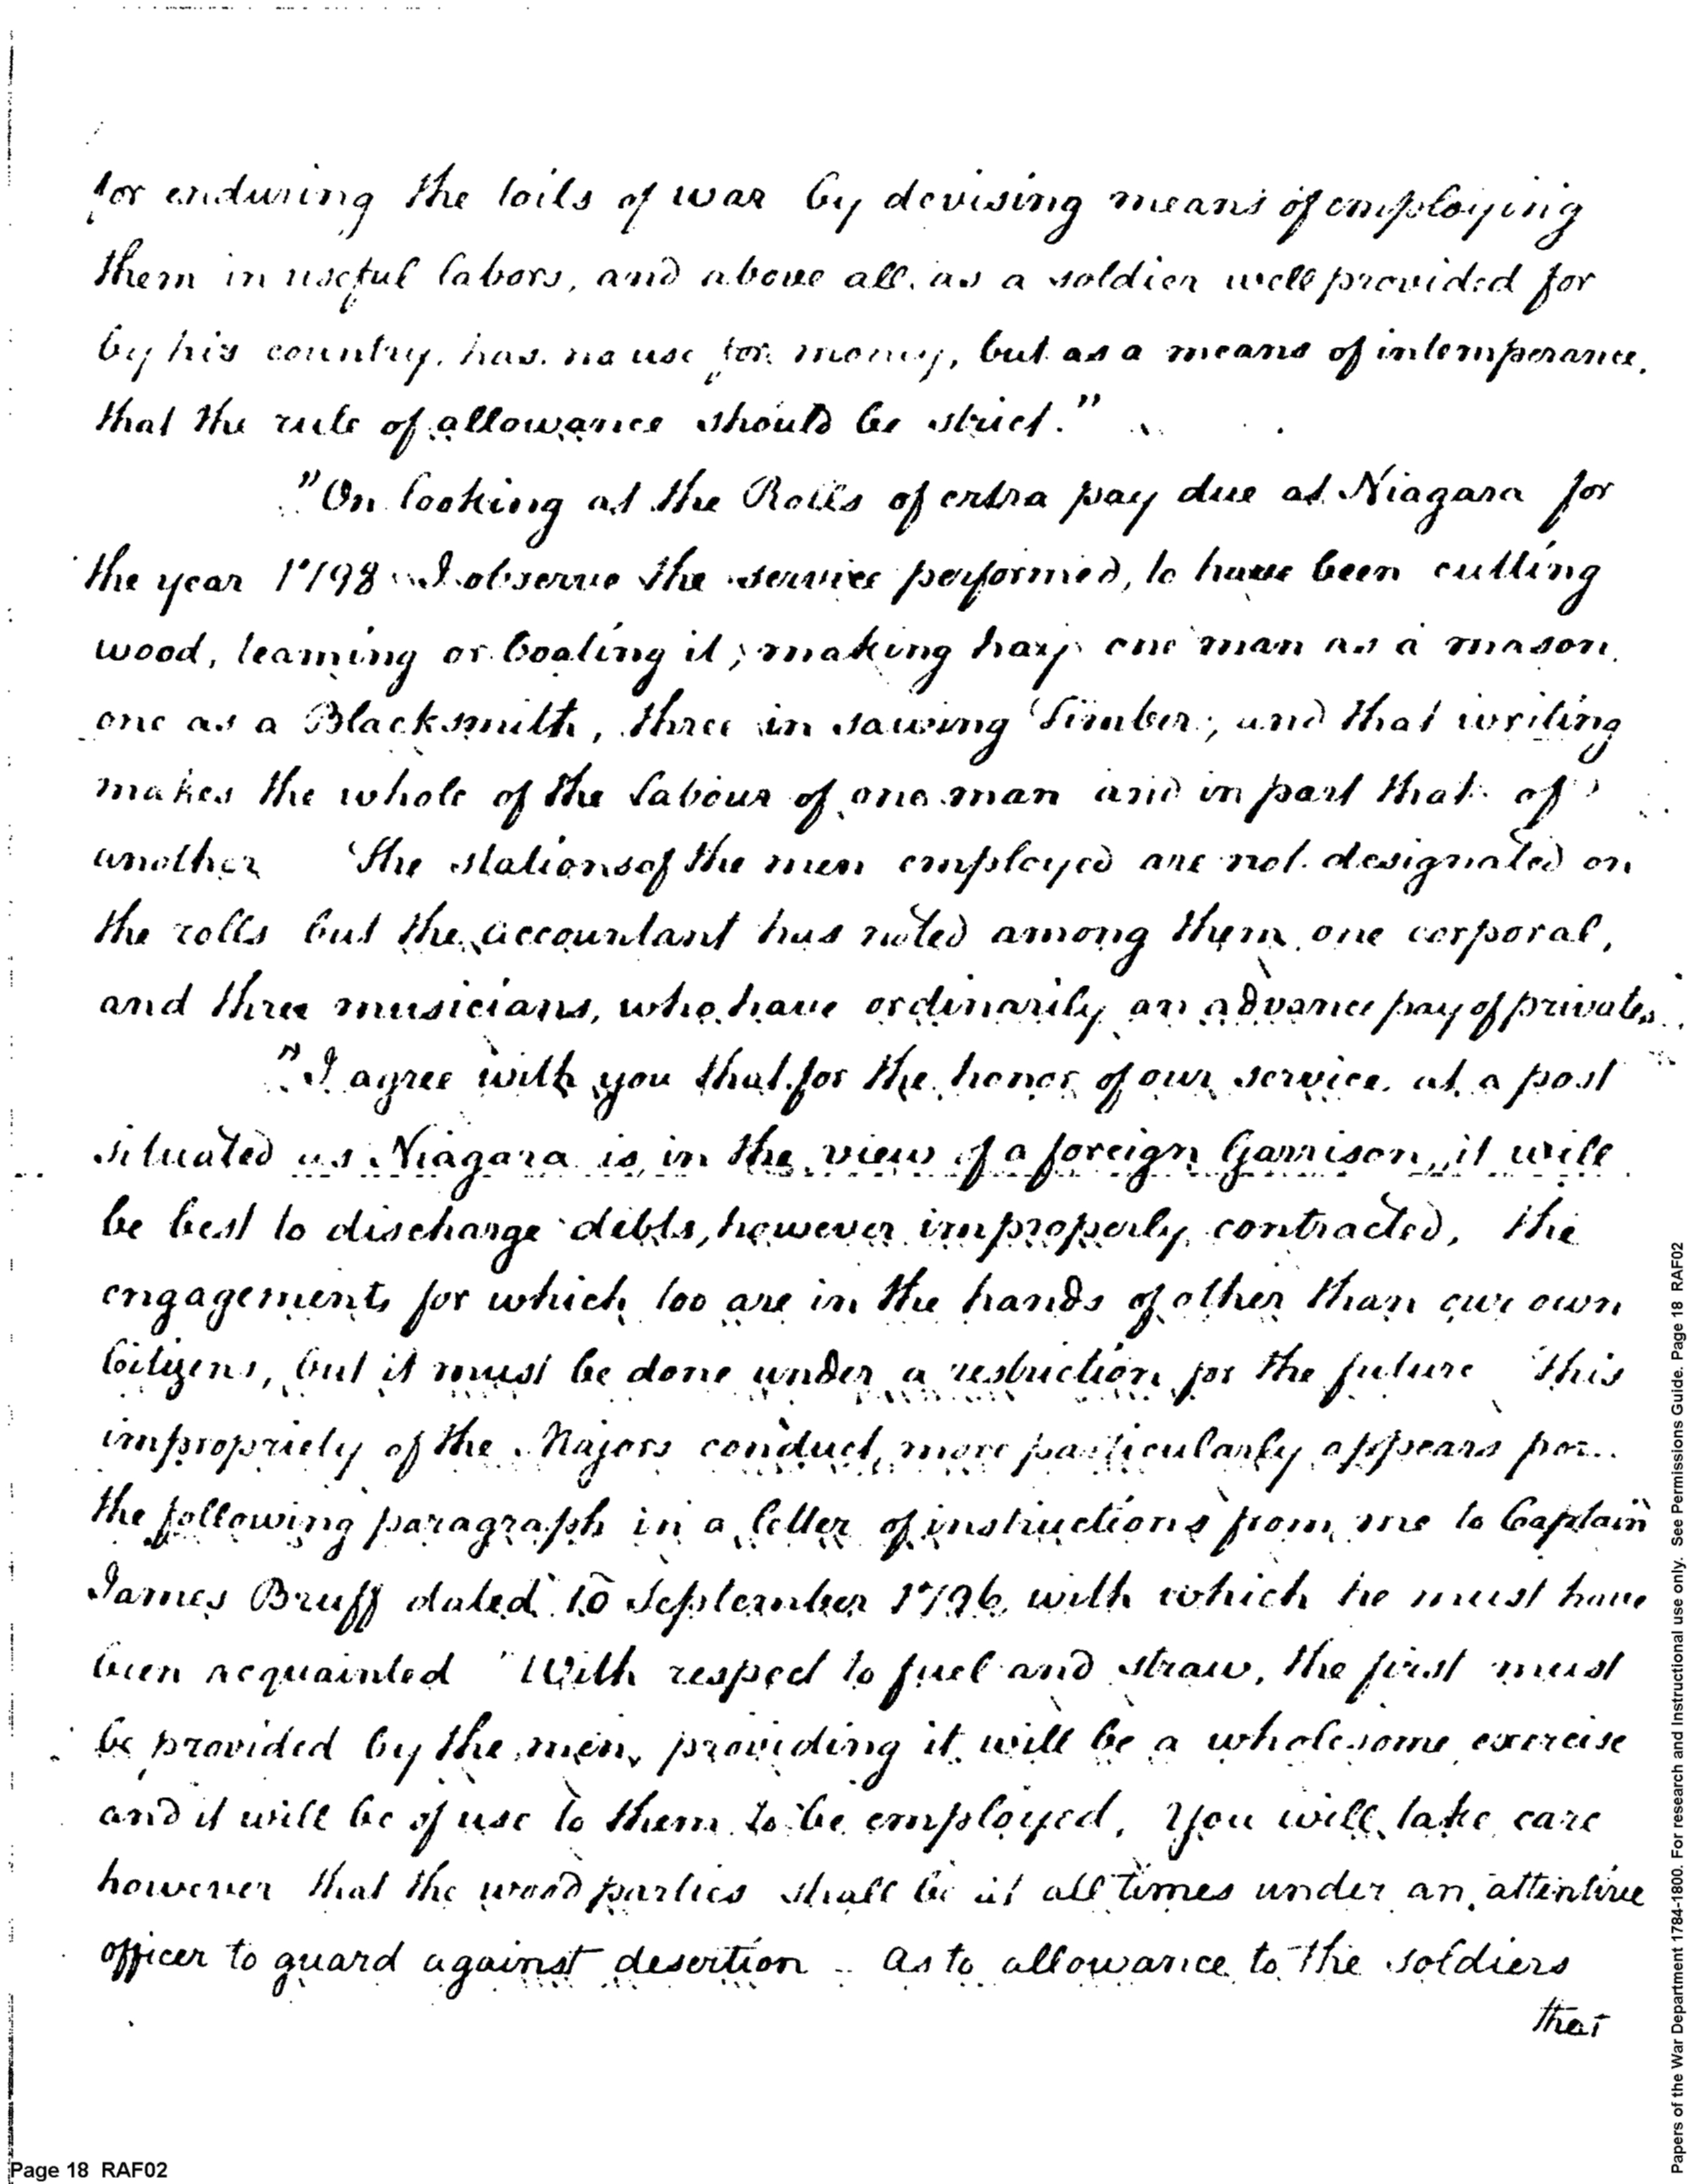 for enduring the toils of war by devising means of employing
them in useful labors, and above all, as a soldier well provided for
by his country, has no use for money, but as a means of intemperance,
that the rule of allowance should be strict."
"On looking at the Rolls of extra pay due at Niagara for
the year 1798 I observe the service performed, to have been cutting
wood, teaming or boating it; making hay; one man as a mason,
one as a Blacksmith, three in sawing Timber; and that writing
makes the whole of the labour of one man and in part that of
another The stations of the men employed are not designated on
the rolls but the accountant has noted among them one corporal,
and three musicians, who have ordinarily an advance pay of privates.
"I agree with you that for the honor of our service, at a post
situated as Niagara is in the view of a foreign Garrison, it will
be best to discharge debts, however improperly contracted, the
engagements for which too are in the hands of other than our own
Citizens, but it must be done under a restriction for the future This
impropriety of the Majors conduct, more particularly appears
the following paragraph in a letter of instructions from me to Captain
James Bruff dated 10 September 1796 with which he must have
been acquainted "With respect to fuel and straw, the first must
be provided by the men, providing it will be a wholesome exercise
and it will be of use to them to be employed. You will take care
however that the wood parties shall be at all times under an attentive
officer to guard against desertion - as to allowance to the soldiers
that
Page 18 RAF02
Papers of the War Department 1784-1800. For research and Instructional use only. See Permissions Guide. Page 18 RAF02